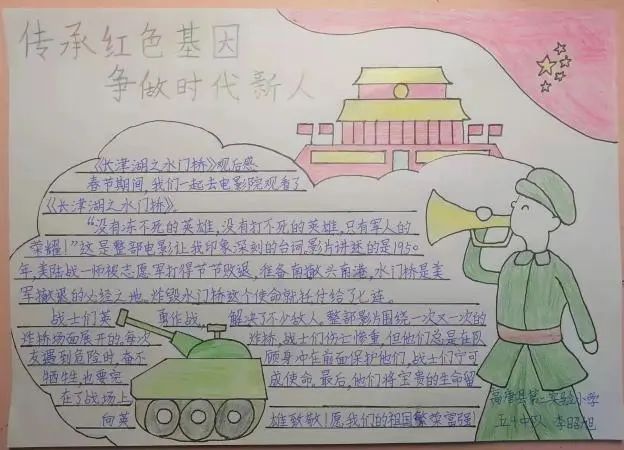 传承红色基因
争做时代新人
《长津湖之水门桥》观后感
春节期间,我们一起去电影院观看了
《长津湖之水门桥》。
“没有冻不死的英雄,没有打不死的英雄,只有军人的
荣耀!”这是整部电影让我印象深刻的台词。影片讲述的是1950
年,美陆战一师被志愿军打得节节败退,准备南撤兴南港,水门桥是美
军撤退的必经之地。炸毁水门桥这个使命就托付给了七连。
战士们英勇作战,解决了不少敌人。整部影片围绕一次又一次的
炸桥场面展开的,每次炸桥,战士们伤亡惨重,但他们总是在队
友遇到危险时,奋不顾身冲在前面保护他们,战士们宁可
牺牲,也要完成使命。最后,他们将宝贵的生命留
在了战场上。
向英雄致敬!愿我们的祖国繁荣富强!
高唐县第二实验小学
五.十中队 李昭旭